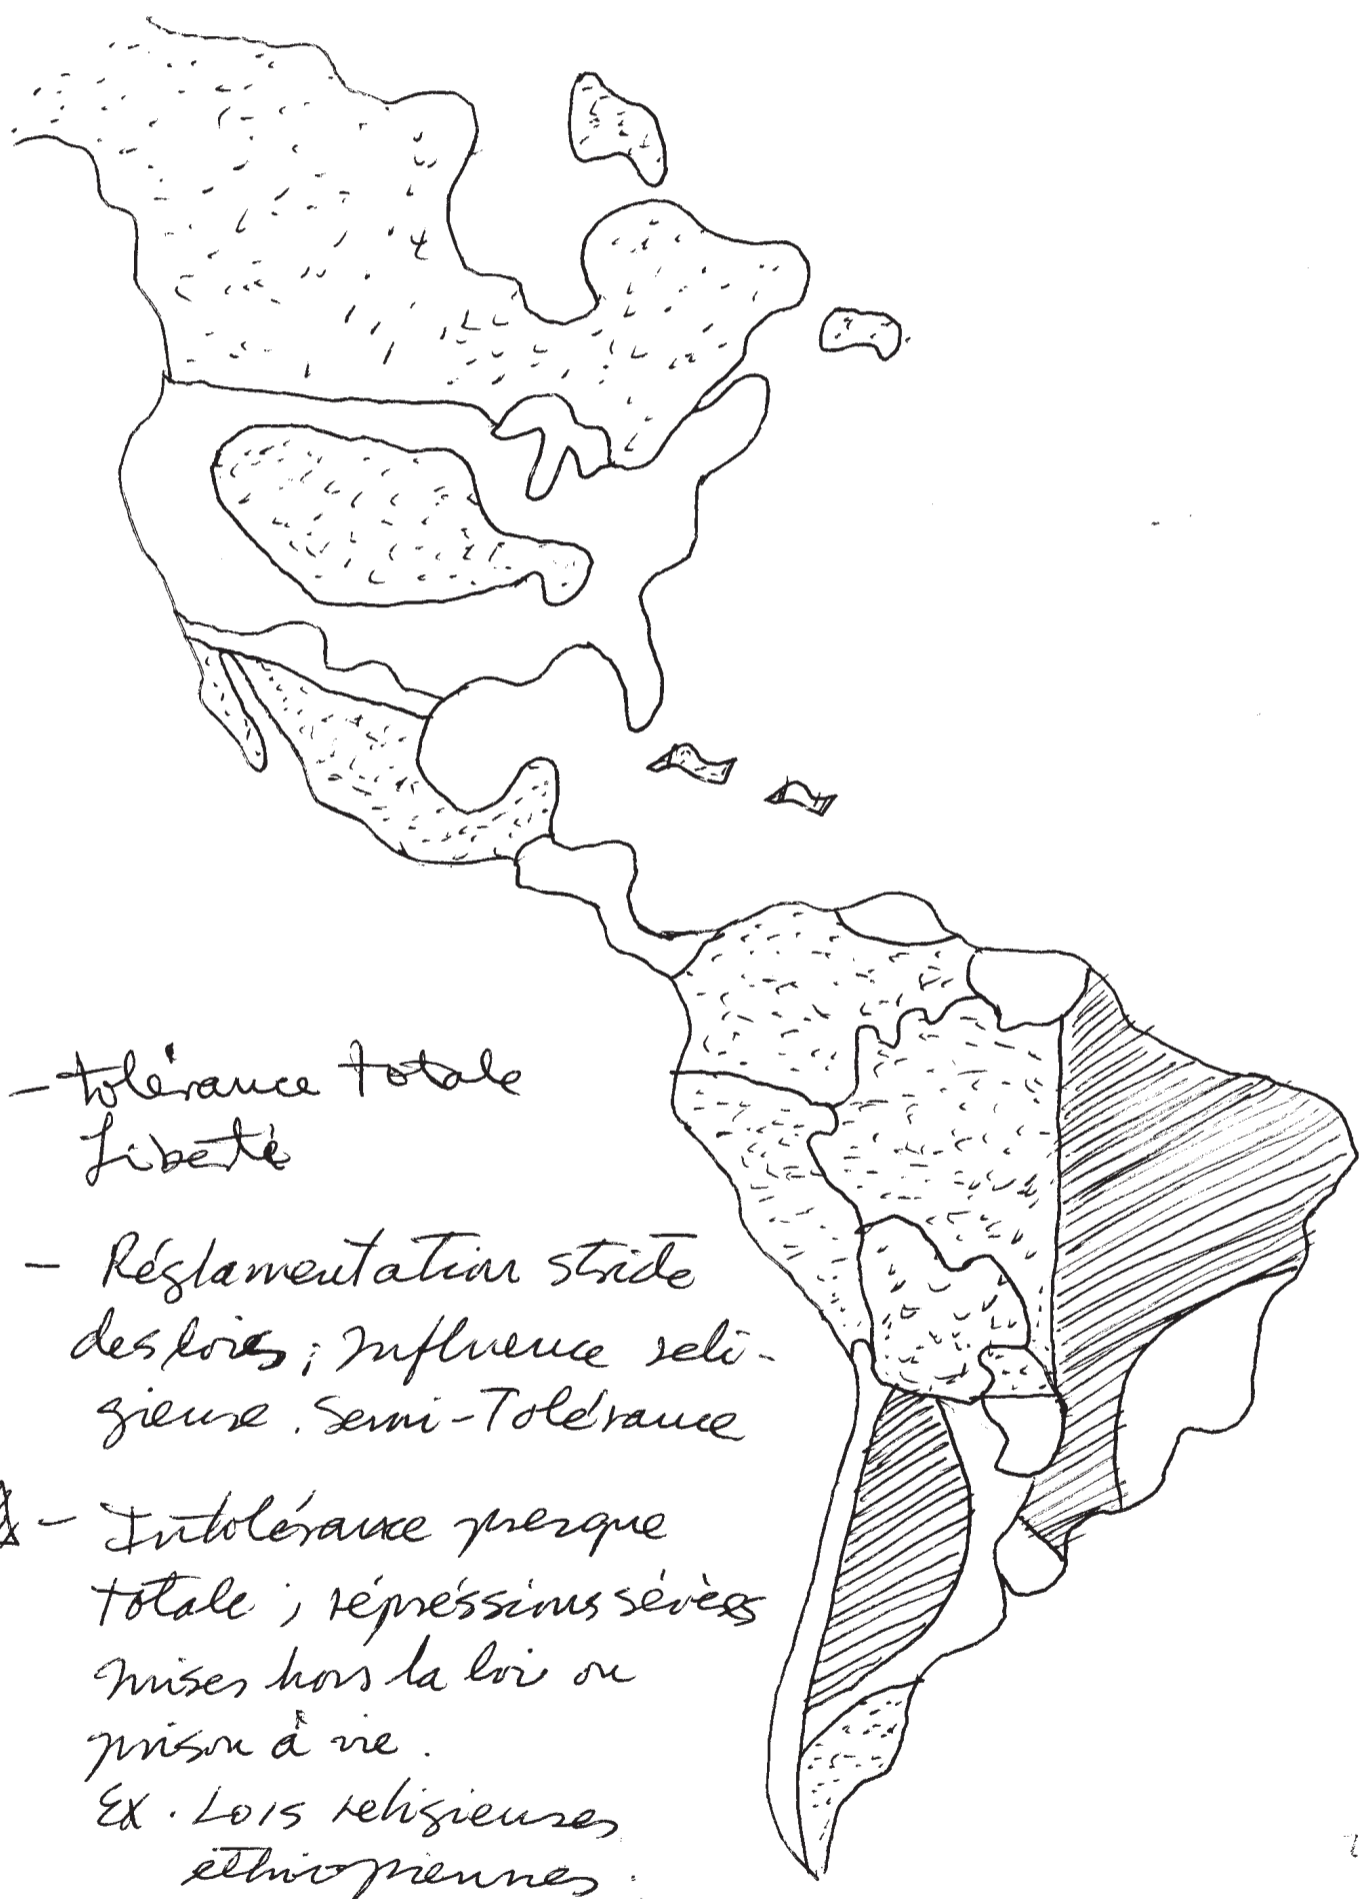 - tolérance totale
liberté
- Réglamentation stricte
des lois ; influence reli-
gieuse. Semi-Tolérance
- Intolérance presque
totale ; répressions sévères
mises hors la loi ou
prison à vie.
Ex. Lois religieuses
éthiopiennes.